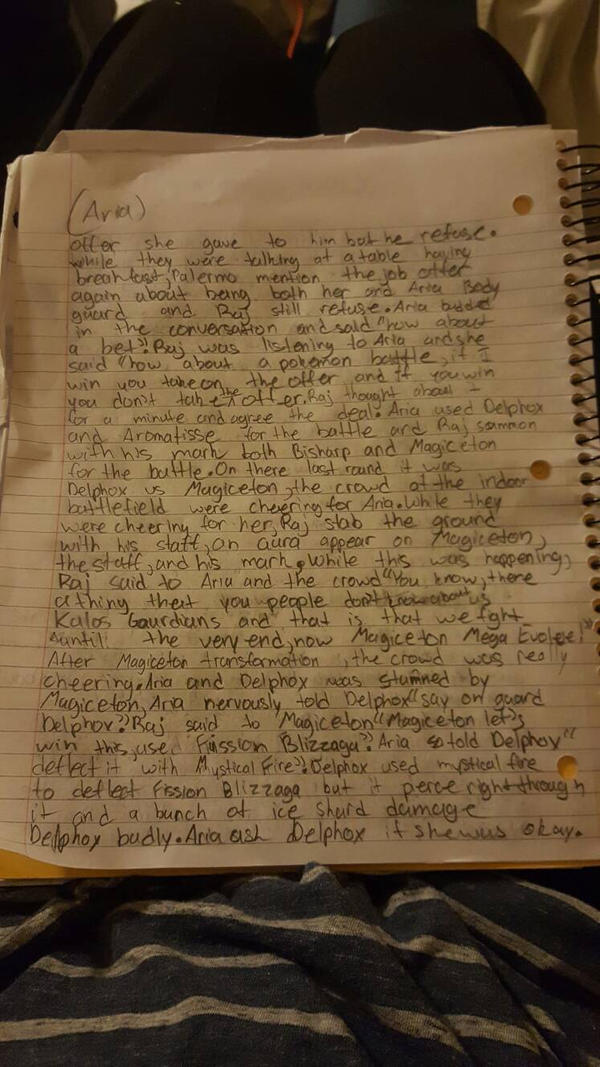 (Aria)
offer she gave to him but he refuse.
While they were talking at a table having
breakfast, Palermo mention the job offer
again about being both her and Aria Body
guard and Raj still refuse. Aria budded
in the conversation and said "how about
a bet". Raj was listening to Aria and she
said "how about a pokemon battle, if I
win you take on the offer and if you win
you don't take the offer. Raj thought about
for a minute and agree the deal. Aria used Delphox
and Aromatisse for the battle and Raj sommon
with his mark both Bisharp and Magiceton
for the battle. On there last round it was
Delphox vs Magiceton, the crowd at the indoor
battlefield were cheering for Aria. While they
were cheering for her, Raj stab the ground
with his staff, an aura appear on Magiceton,
the staff, and his mark. While this was happening,
Raj said to Aria and the crowd "You know, there
a thing that you people don't know about us
Kalos Gaurdians and that is that we fight
until the very end, now Magiceton Mega Evolve!"
After Magiceton transformation, the crowd was really
cheering. Aria and Delphox was stunned by
Magiceton, Aria nervously told Delphox "say on guard
Delphox". Raj said to Magiceton "Magiceton let's
win this, used Fission Blizzaga". Aria so told Delphox "
deflect it with Mystical Fire". Delphox used mystical fire
to deflect Fission Blizzaga but it perce right through
it and a bunch of ice shard damage
Delphox badly. Aria ask Delphox if she was okay.